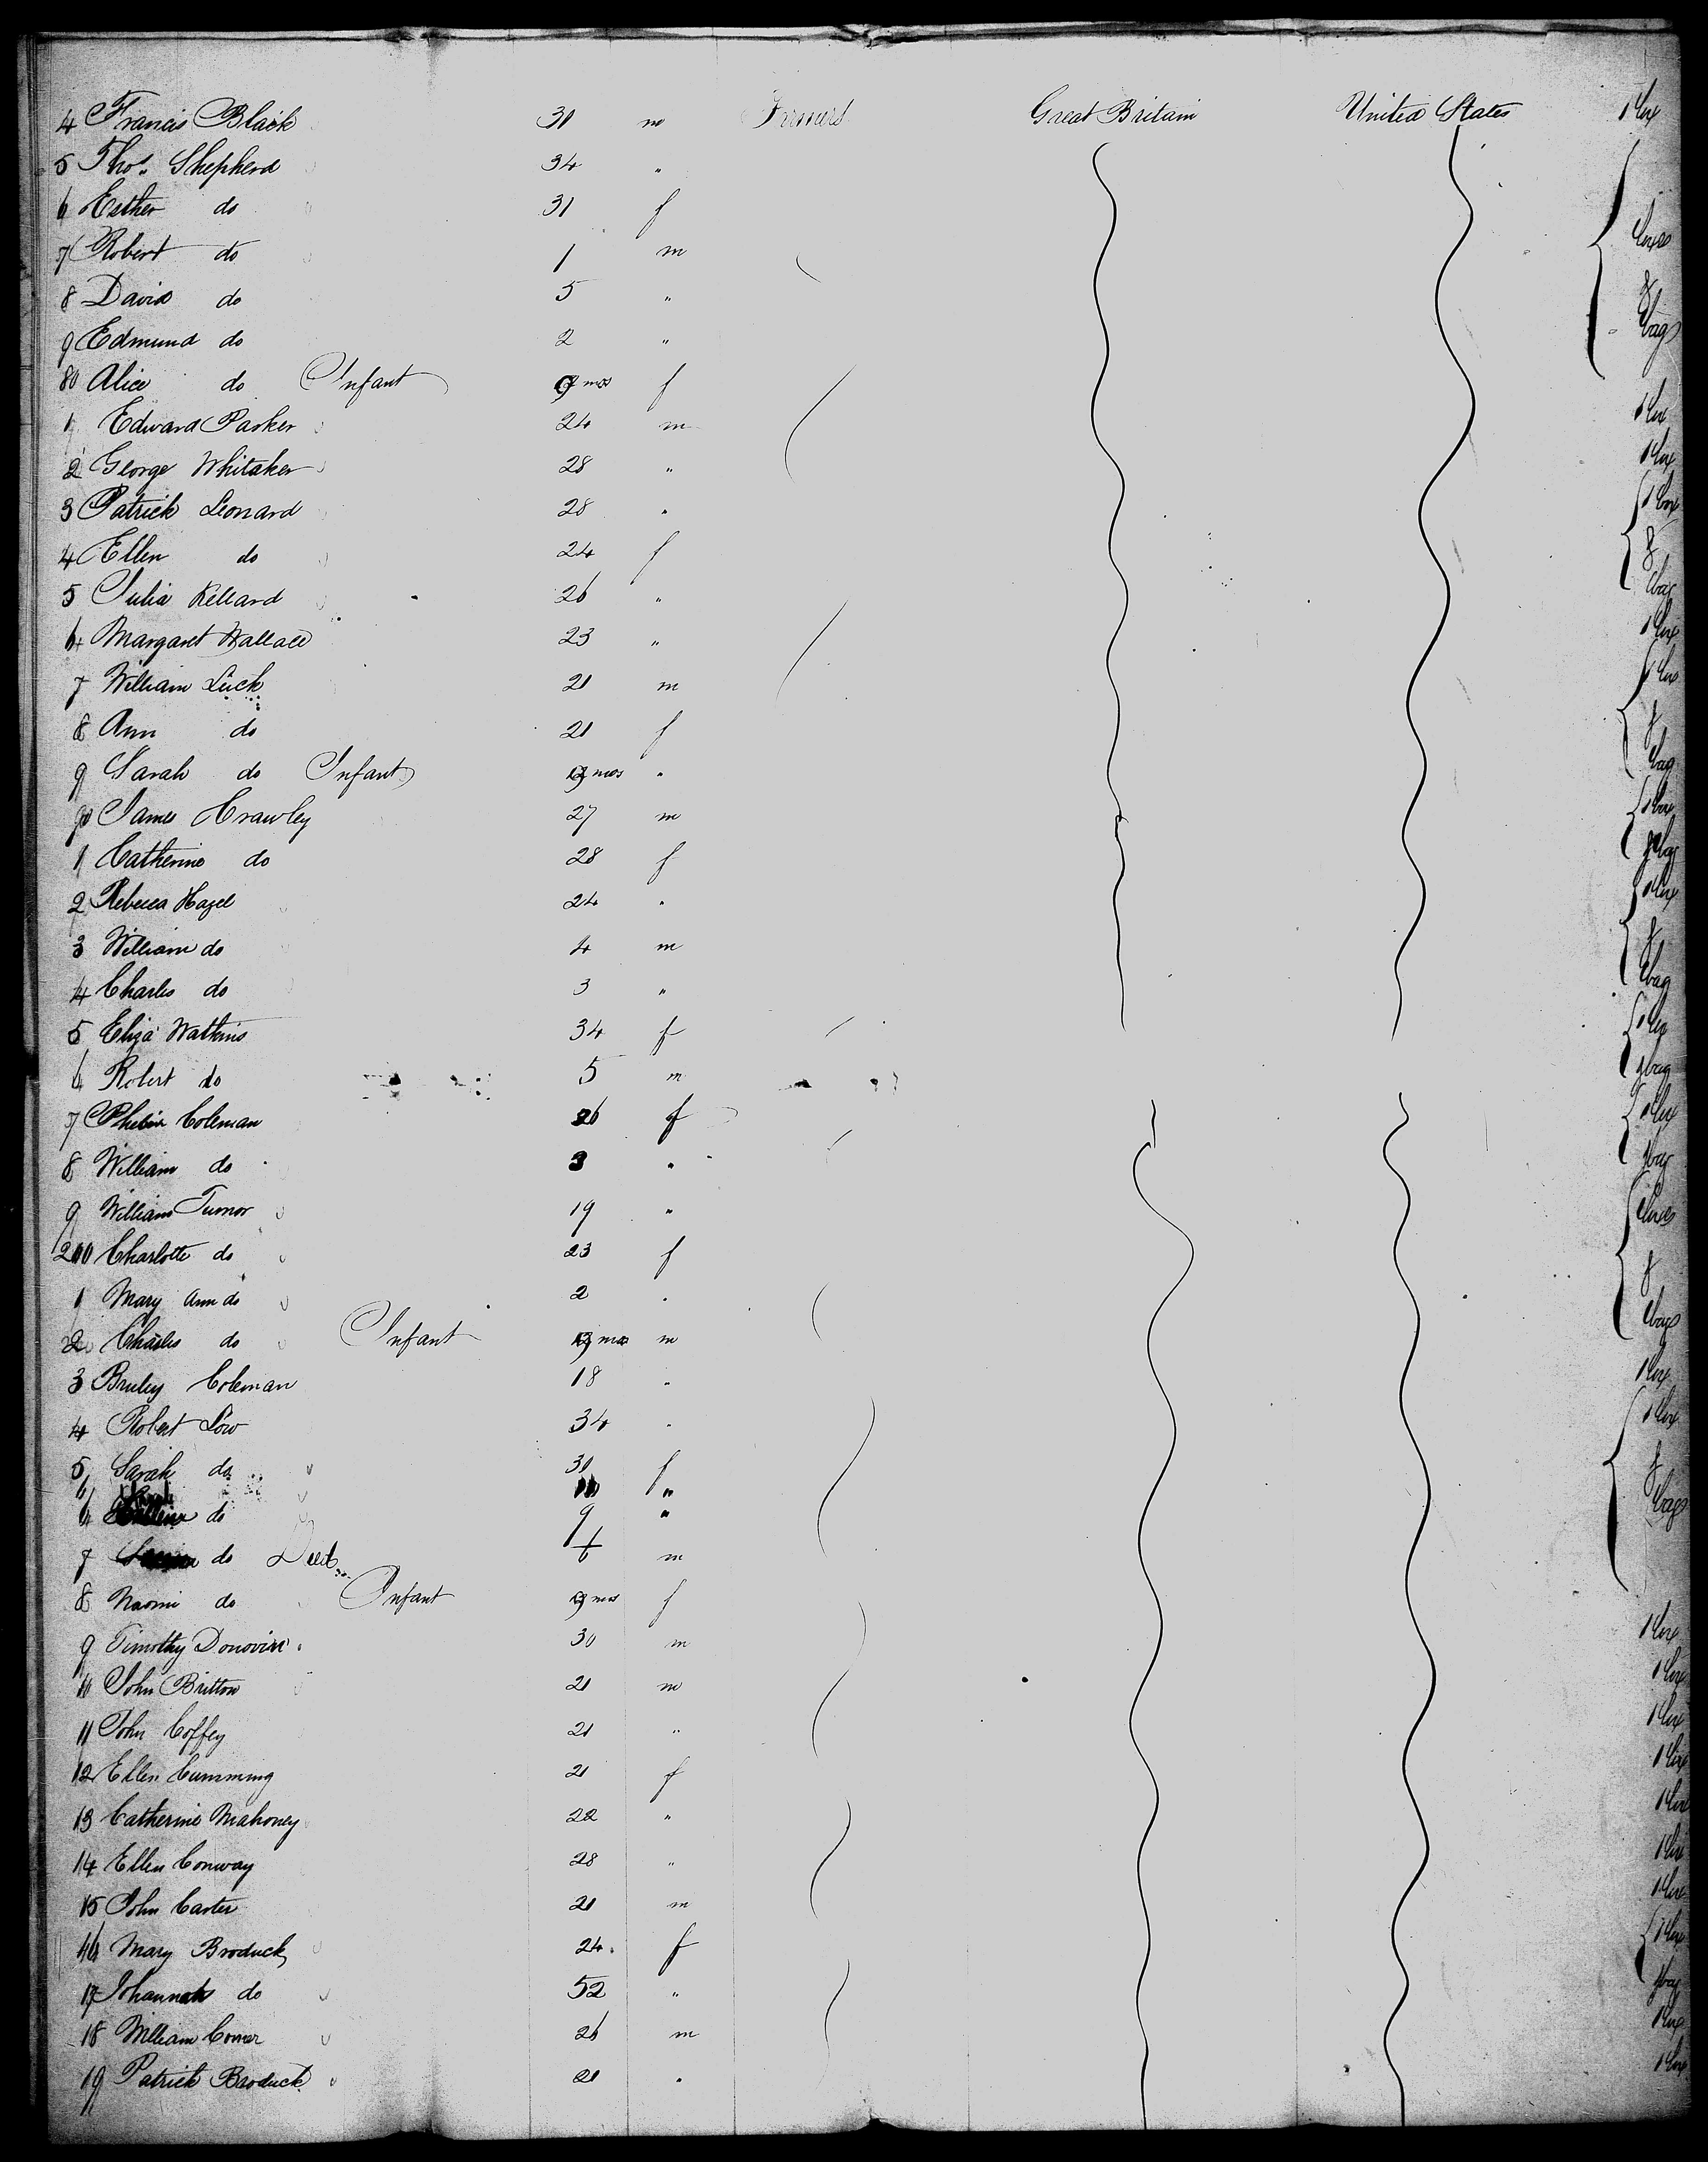 4 Francis Black 30 m Farmers Great Britain United States 1 box
5 Thos. Shepherd 34 "
6 Esther do 31 f
7 Robert do 1 m boxes
8 David do 5 " &
9 Edmund do 2 " bags
80 Alice do Infant 9 mos f
1 Edward Parker 24 m 1 box
2 George Whitaker 28 " 1 box
3 Patrick Leonard 28 " 1 box
4 Ellen do 24 f &
5 Julia Kelland 26 " bag
6 Margaret Wallace 23 " 1 box
7 William Luck 21 m 1 box
8 Ann do 21 f &
9 Sarah do Infant mos " bag
90 James Crawley 27 m 1 box
1 Catherine do 28 f & bag
2 Rebecca Hazel 24 " 1 box
3 William do 4 m &
4 Charles do 3 " bag
5 Eliza Watkins 34 f 1 box
6 Robert do 5 m & bag
7 Coleman 26 f 1 box
8 William do 3 " & bag
9 William Turnor 19 " boxes
200 Charlotte do 23 f &
1 Mary Ann do 2 " bags
2 Charles do Infant mos m
3 Bruley Coleman 18 " 1 box
4 Robert Low 34 " 1 box
5 Sarah do 30 f &
6 "
6 do 9 " bags
7 do Died 6 m
8 Naomi do Infant mos f
9 Timothy Donovin 30 m 1 box
10 John Britton 21 m 1 box
11 John Coffey 21 " 1 box
12 Ellen Cumming 21 f 1 box
13 Catherine Mahoney 22 " 1 box
14 Ellen Conway 28 " 1 box
15 John Carter 21 m 1 box
16 Mary Broduck 24 f 1 box
17 Johannah do 52 " & bag
18 William Comer 26 m 1 box
19 Patrick Broduck 21 " 1 box